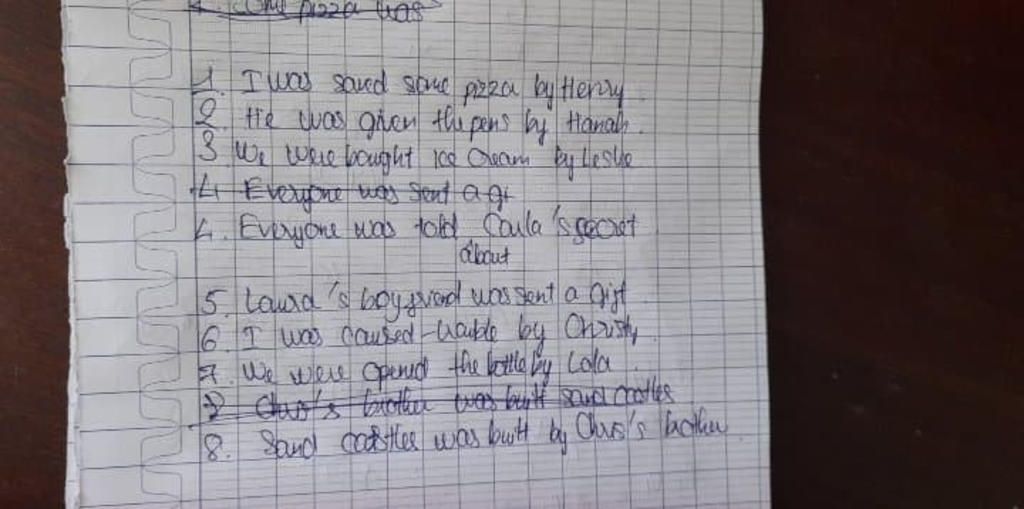 pizza was
1. I was saved some pizza by Henry.
2. He was given the pens by Hanah.
3 We were bought ice cream by Leslie
4 Everyone was sent a gi
4. Everyone was told Caula's secret
about
5. Laura's boyfriend was sent a gift
6. I was caused trouble by Christy
7. We were opened the bottle by Lola.
8 Chris's brother was built sand castles
8. Sand castles was built by Chris's brother